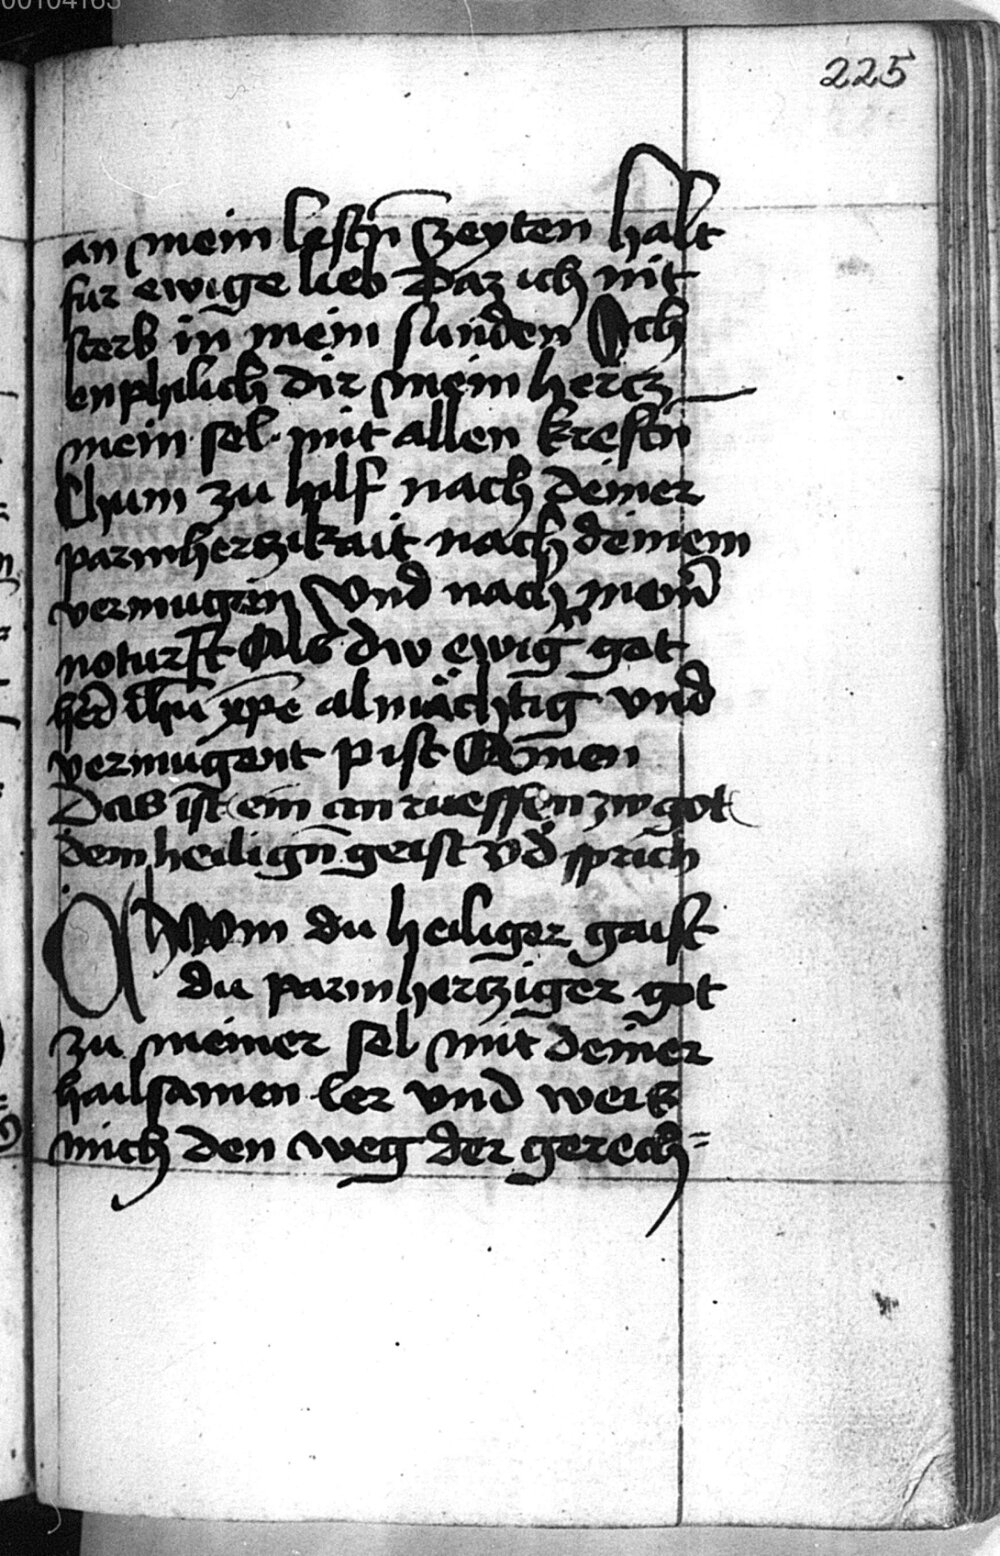 00104163
225
an mein lestn̄ zeyten halt
fur ewige lieb Daz ich nit
sterb in mein sunden Ich
enphilich dir mein hertz
mein sel mit allen kreftn̄
Chum zu hilf nach deiner
parmhertzikait nach deinem
vermugen Vnd nach mein̄
noturft Als dw ewig got
her̄ ih̄u xp̄e almächtig vnd
vermugent pist Amen
Das ist ein an rueffen zw got
dem heilign̄ geist vn̄d sprich
O kwm du heiliger gaist
du parmhertziger got
zu meiner sel mit deiner
hailsamen ler vnd weis
mich den weg der gerech=